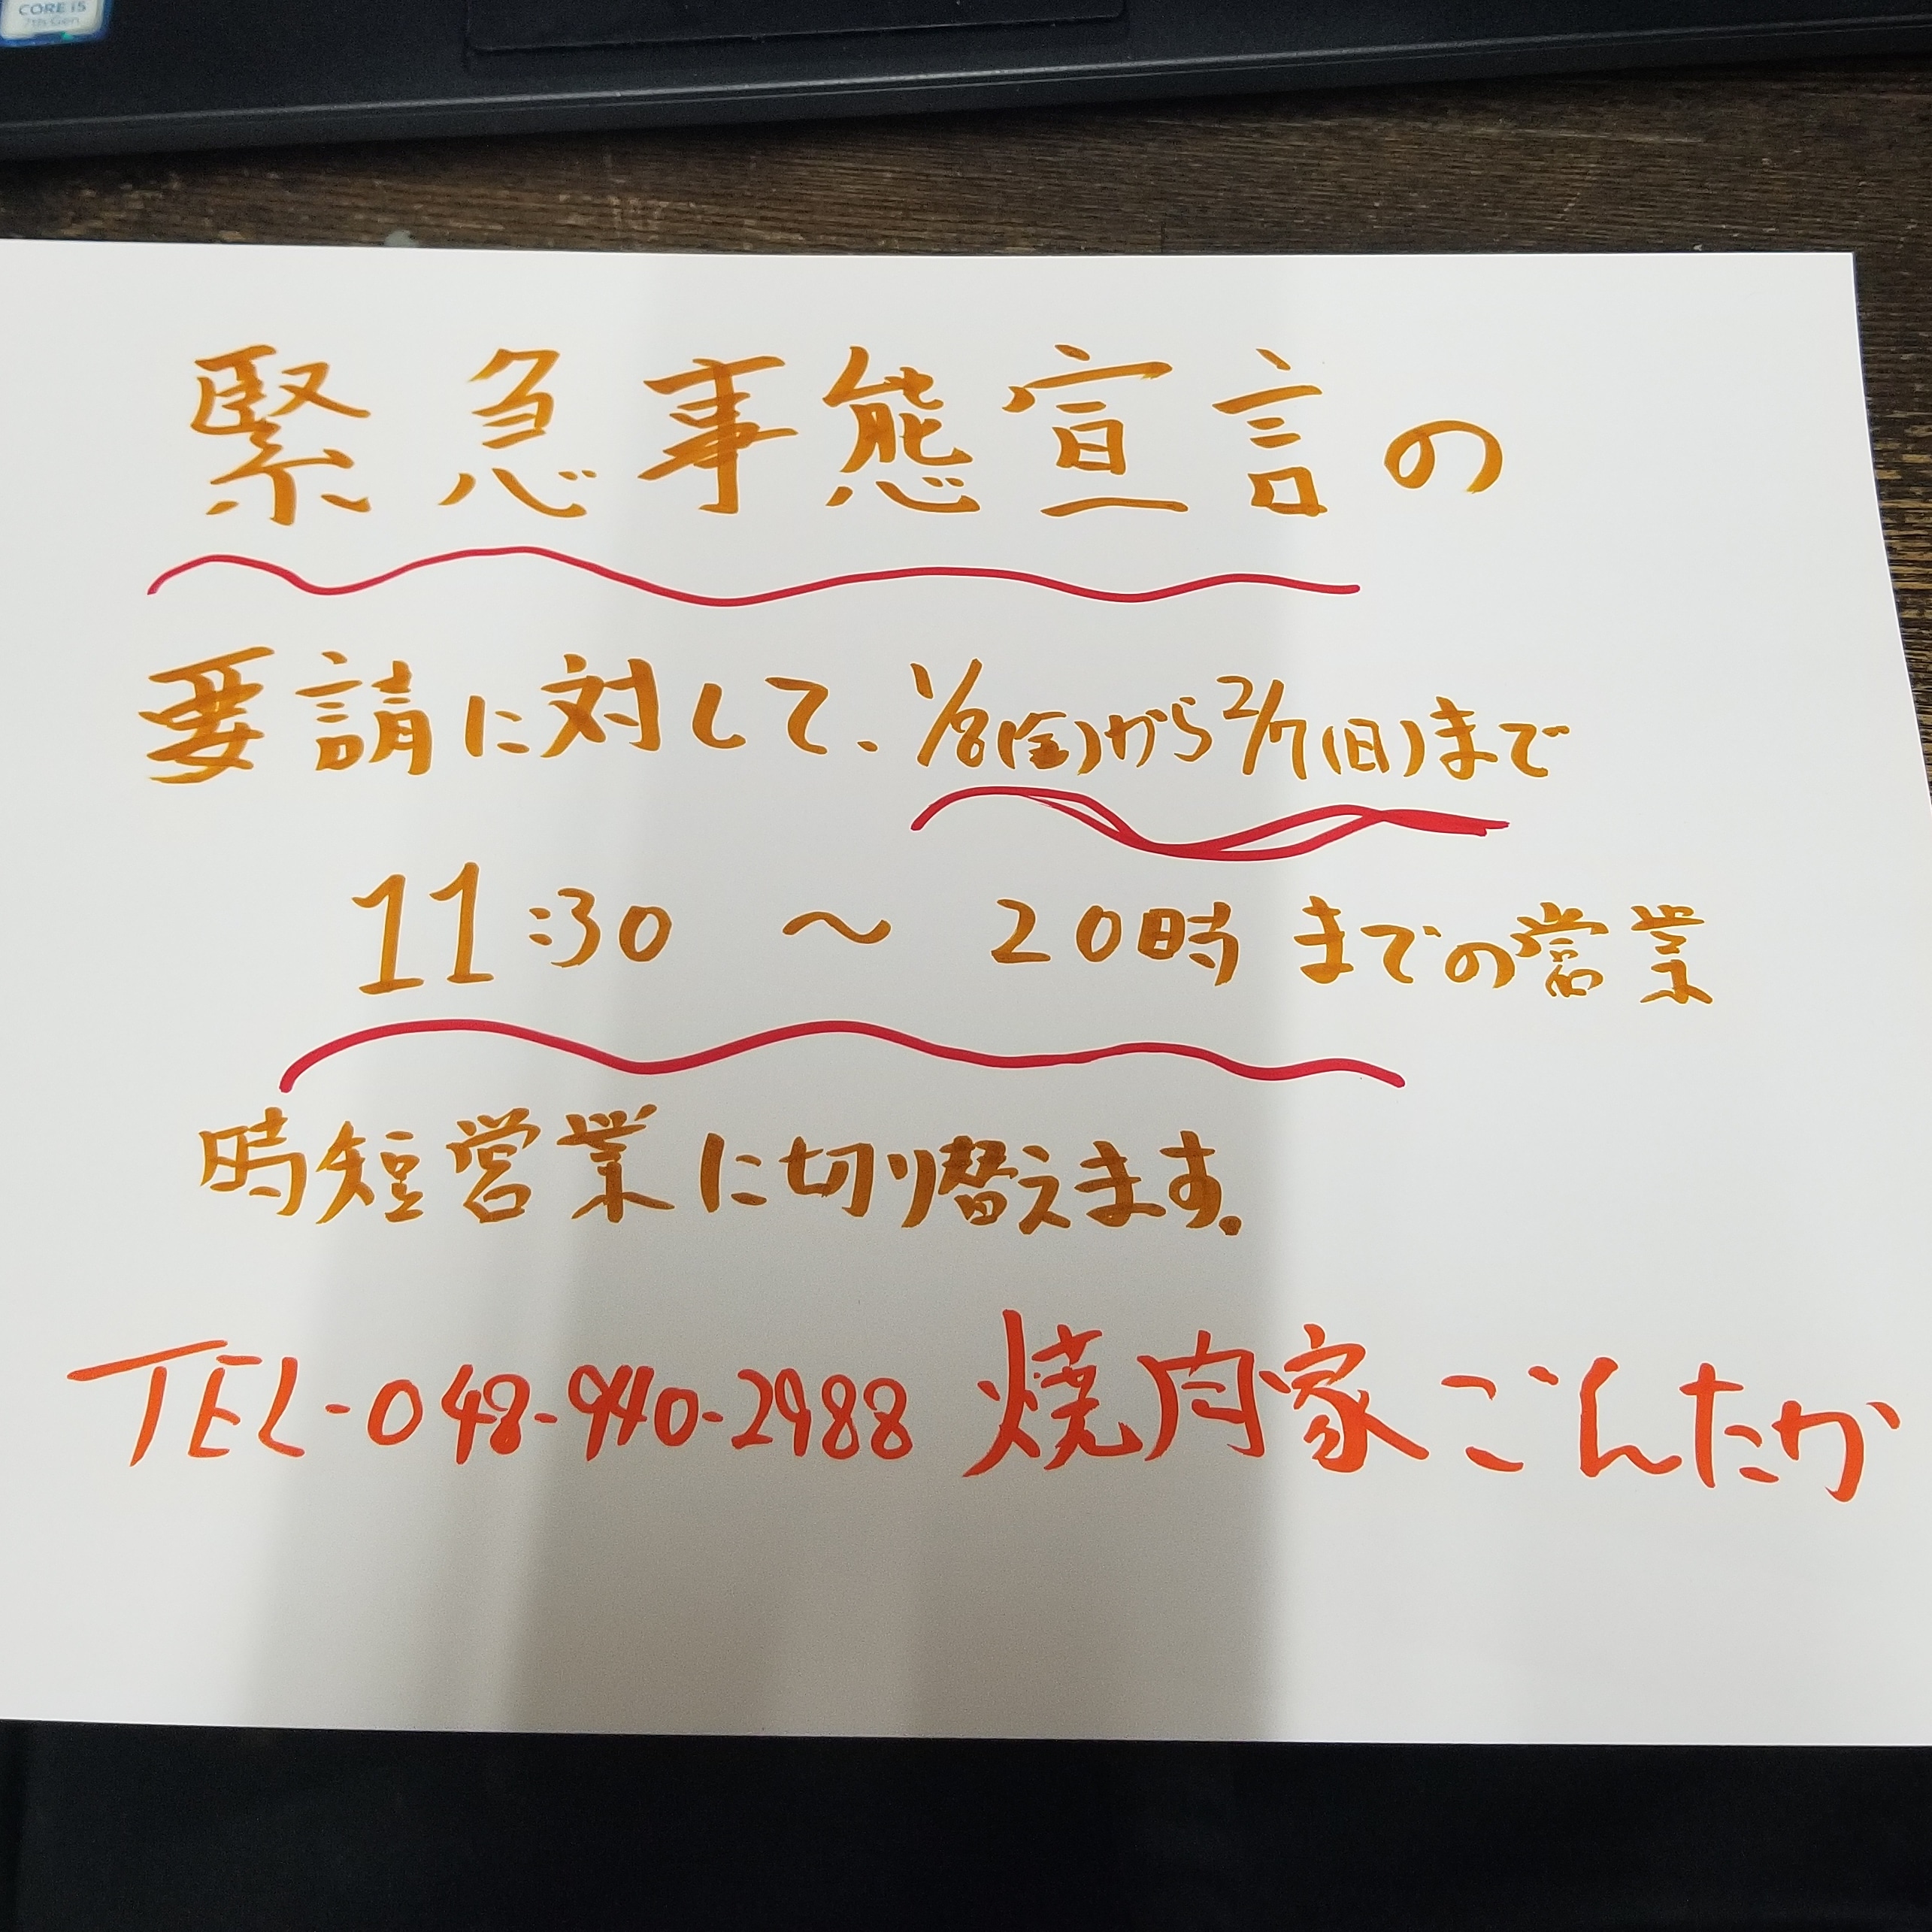 CORE i5
7th Gen
緊急事態宣言の
要請に対して、1/8(金)から2/7(日)まで
11:30 〜 20時までの営業
時短営業に切り替えます。
TEL-048-940-2988 焼肉家ごんたか